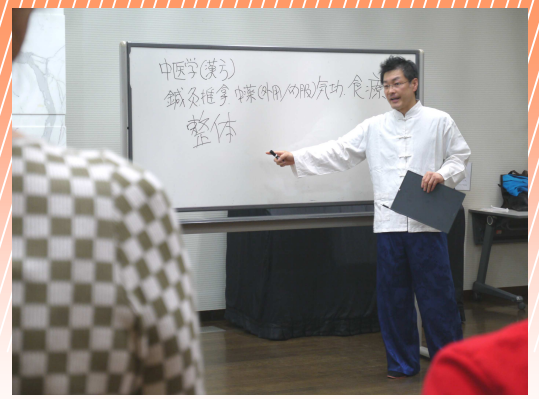 中医学(漢方)
鍼灸 推拿 中薬(外用/内服) 気功・食療
整体